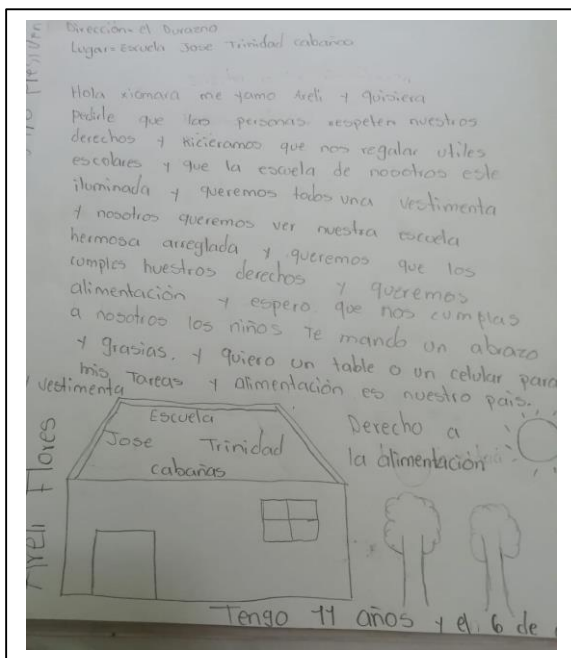 Dirección= el Durazno
Lugar= Escuela Jose Trinidad cabañas
Hola xiomara me yamo Areli y quisiera
pedirle que las personas respeten nuestros
derechos y kicieramos que nos regalar utiles
escolares y que la escuela de nosotros este
iluminada y queremos todos una vestimenta
y nosotros queremos ver nuestra escuela
hermosa arreglada y queremos que los
cumples nuestros derechos y queremos
alimentación y espero que nos cumplas
a nosotros los niños te mando un abrazo
y grasias. y quiero un table o un celular para
mis Tareas y alimentación es nuestro pais.
y vestimenta
Escuela
Jose Trinidad
cabañas
Derecho a
la alimentación
Areli Flores
Tengo 11 años y el 6 de